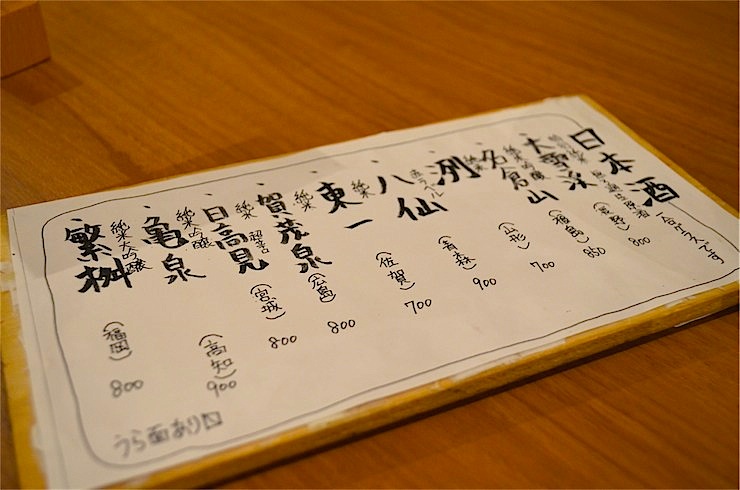 日本酒 一合グラスです
・大雪渓 (長野) 800
・名倉山 純米吟醸 (福島) 850
・洌 純米 (山形) 700
・八仙 (青森) 900
・東一 純米 (佐賀) 700
・賀茂泉 純米 (広島) 800
・日高見 純米 超辛口 (宮城) 800
・亀泉 純米吟醸 (高知) 900
・繁桝 純米大吟醸 (福岡) 800
うら面あり